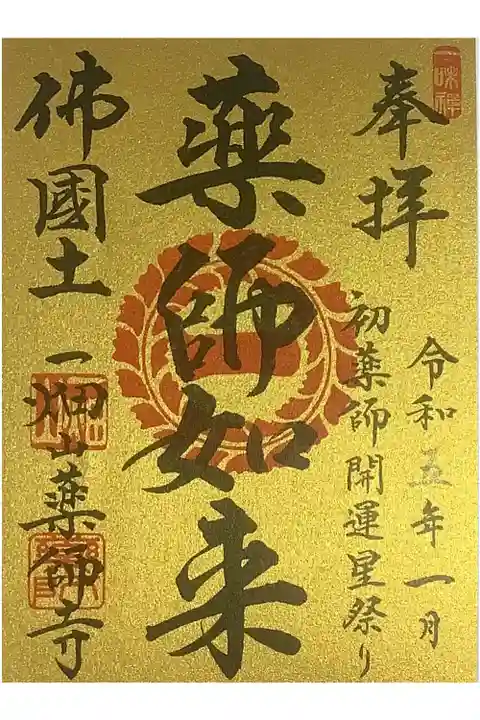 一味禅
奉拝
令和五年一月
初薬師開運星祭り
薬師如来
佛國土
一畑山薬師寺